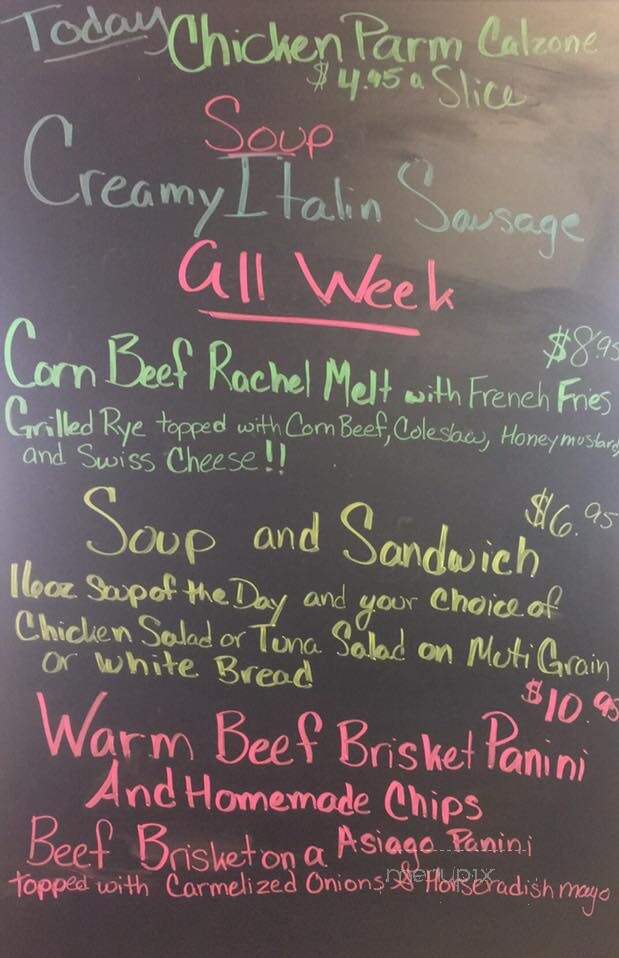 Today Chicken Parm Calzone
$4.95 a Slice
Soup
Creamy Italin Sausage
All Week
$8.95
Corn Beef Rachel Melt with French Fries
Grilled Rye topped with Corn Beef, Coleslaw, Honey mustard
and Swiss Cheese!!
$6.95
Soup and Sandwich
16oz Soup of the Day and your choice of
Chicken Salad or Tuna Salad on Muti Grain
or white Bread
$10.95
Warm Beef Brisket Panini
And Homemade Chips
Beef Brisket on a Asiago Panini
topped with Carmelized Onions & Horseradish mayo
menupix